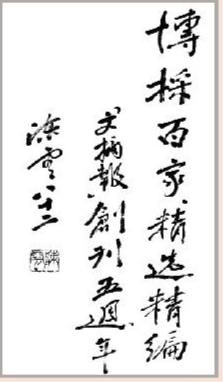 博採百家精选精编
文摘報創刊五週年
滌雲八十二